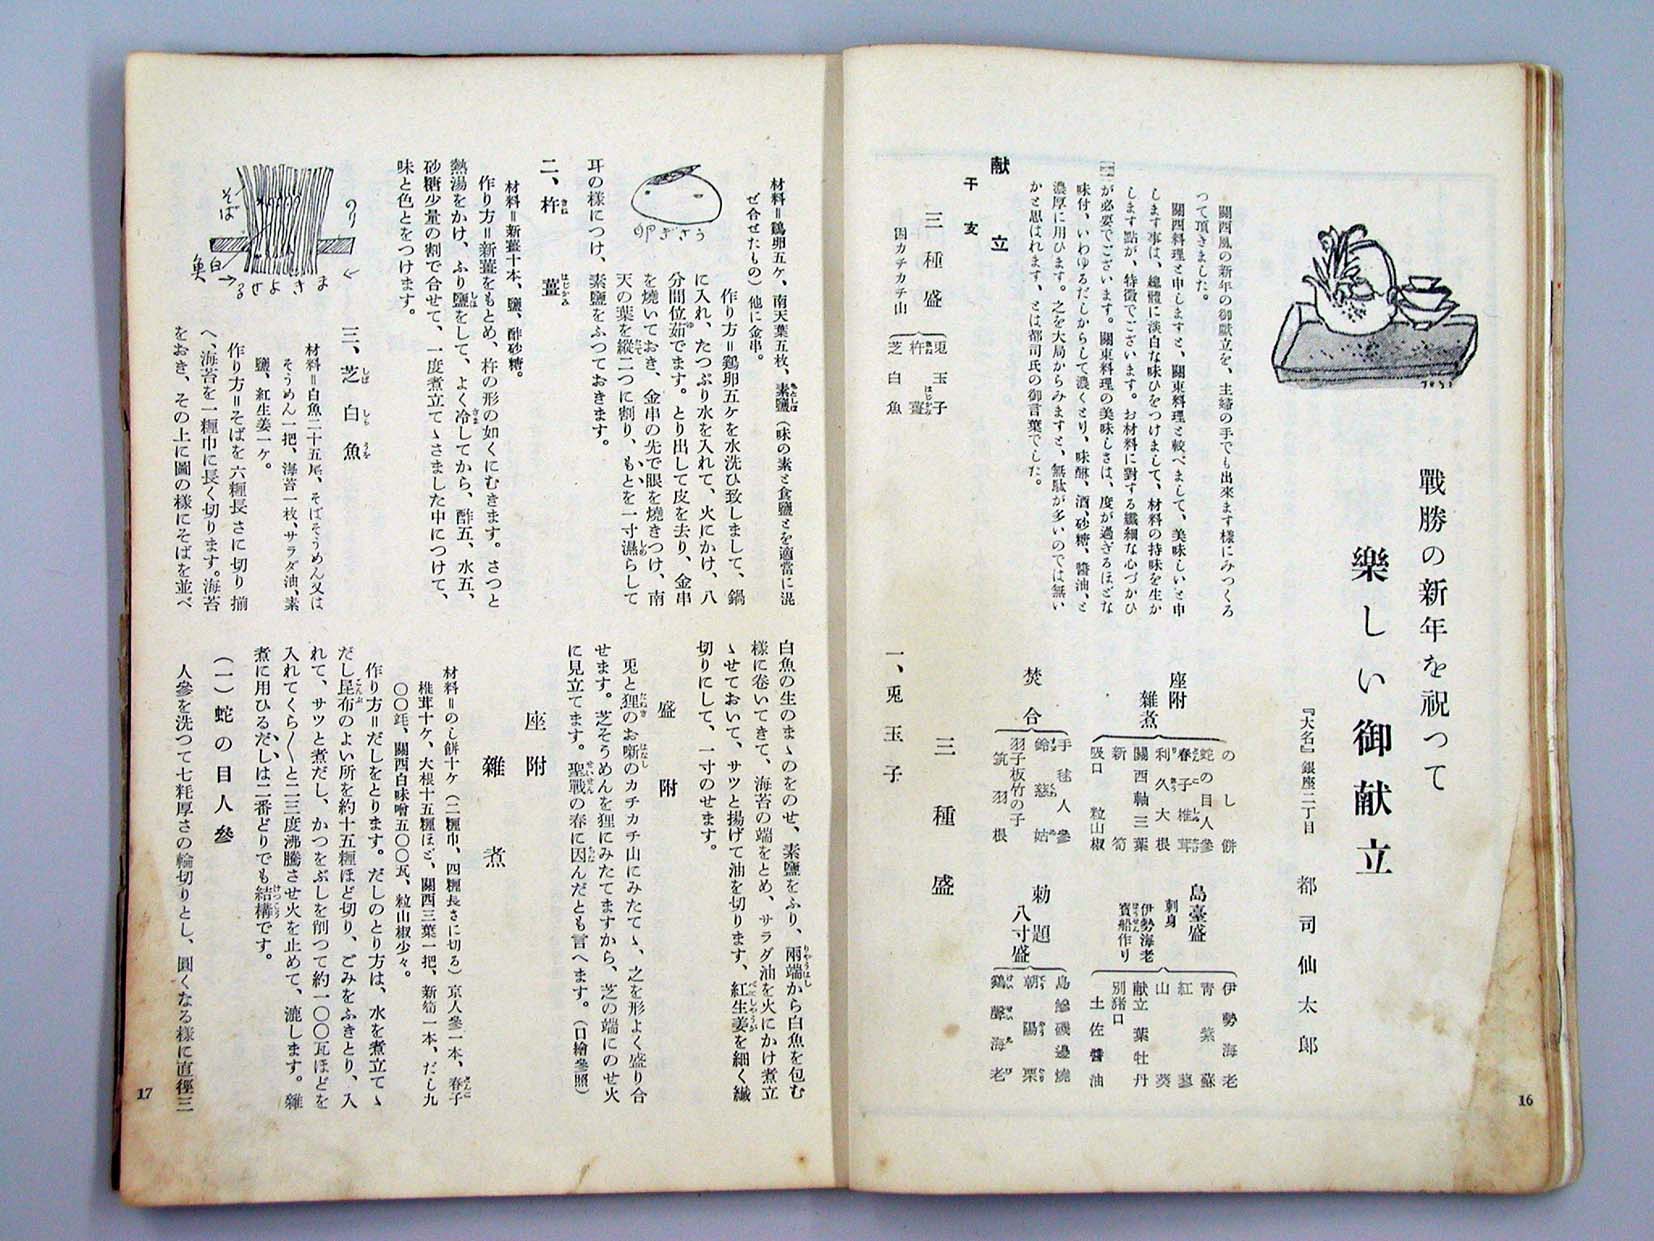 戰勝の新年を祝つて
樂しい御献立
『大名』銀座二丁目 都司仙太郎
關西風の新年の御獻立を、主婦の手でも出來ます樣にみつくろ
つて頂きました。
關西料理と申しますと、關東料理と較べまして、美味しいと申
します事は、總體に淡白な味ひをつけまして、材料の持味を生か
します點が、特徴でございます。お材料に對する纖細な心づかひ
が必要でございます。關東料理の美味しさは、度が過ぎるほどな
味付、いわゆるだしからして濃くとり、味醂、酒、砂糖、醬油、と
濃厚に用ひます。之を大局からみますと、無駄が多いのでは無い
かと思はれます、とは都司氏の御言葉でした。
献立
干支
三種盛
因カチカチ山
兎玉子
杵薑
芝白魚
座附
雜煮
のし餅
蛇の目人參
春子椎茸
利久大根
關西軸三葉
新筍
吸口 粒山椒
焚合
手毬人參
鈴慈姑
羽子板竹の子
筑羽根
島臺盛
刺身
伊勢海老
寶船作り
伊勢海老
青紫蘇
紅蓼
山葵
献立 葉牡丹
別猪口
土佐醬油
勅題
八寸盛
島鰺磯邊燒
朝陽栗
鷄聲海老
三種盛
一、兎玉子
16
材料＝鷄卵五ケ、南天葉五枚、素鹽（味の素と食鹽とを適當に混
ぜ合せたもの）他に金串。
卵ぎさう
作り方＝鷄卵五ケを水洗ひ致しまして、鍋
に入れ、たつぷり水を入れて、火にかけ、八
分間位茹でます。とり出して皮を去り、金串
を燒いておき、金串の先で眼を燒きつけ、南
天の葉を縱二つに割り、もとを一寸濕らして
耳の樣につけ、素鹽をふつておきます。
二、杵薑
材料＝新薑十本、鹽、酢砂糖。
作り方＝新薑をもとめ、杵の形の如くにむきます。さつと
熱湯をかけ、ふり鹽をして、よく冷してから、酢五、水五、
砂糖少量の割で合せて、一度煮立てゝさました中につけて、
味と色とをつけます。
のり
そば
白魚
るさよきま
三、芝白魚
材料＝白魚二十五尾、そばそうめん又は
そうめん一把、海苔一枚、サラダ油、素
鹽、紅生姜一ケ。
作り方＝そばを六糎長さに切り揃
へ、海苔を一糎巾に長く切ります。海苔
をおき、その上に圖の樣にそばを並べ
白魚の生のまゝのをのせ、素鹽をふり、兩端から白魚を包む
樣に卷いてきて、海苔の端をとめ、サラダ油を火にかけ煮立
ゝせておいて、サツと揚げて油を切ります、紅生姜を細く纎
切りにして、一寸のせます。
盛附
兎と狸のお噺のカチカチ山にみたてゝ、之を形よく盛り合
せます。芝そうめんを狸にみたてますから、芝の端にのせ火
に見立てます。聖戰の春に因んだとも言へます。（口繪參照）
座附
雜煮
材料＝のし餅十ケ（二糎巾、四糎長さに切る）京人參一本、春子
椎茸十ケ、大根十五糎ほど、關西三葉一把、新筍一本、だし九
〇〇竓、關西白味噌五〇〇瓦、粒山椒少々。
作り方＝だしをとります。だしのとり方は、水を煮立てゝ
だし昆布のよい所を約十五糎ほど切り、ごみをふきとり、入
れて、サツと煮だし、かつをぶしを削つて約一〇〇瓦ほどを
入れてくら〳〵と二三度沸騰させ火を止めて、漉します。雜
煮に用ひるだしは二番どりでも結構です。
（一）蛇の目人參
人參を洗つて七粍厚さの輪切りとし、圓くなる樣に直徑三
17